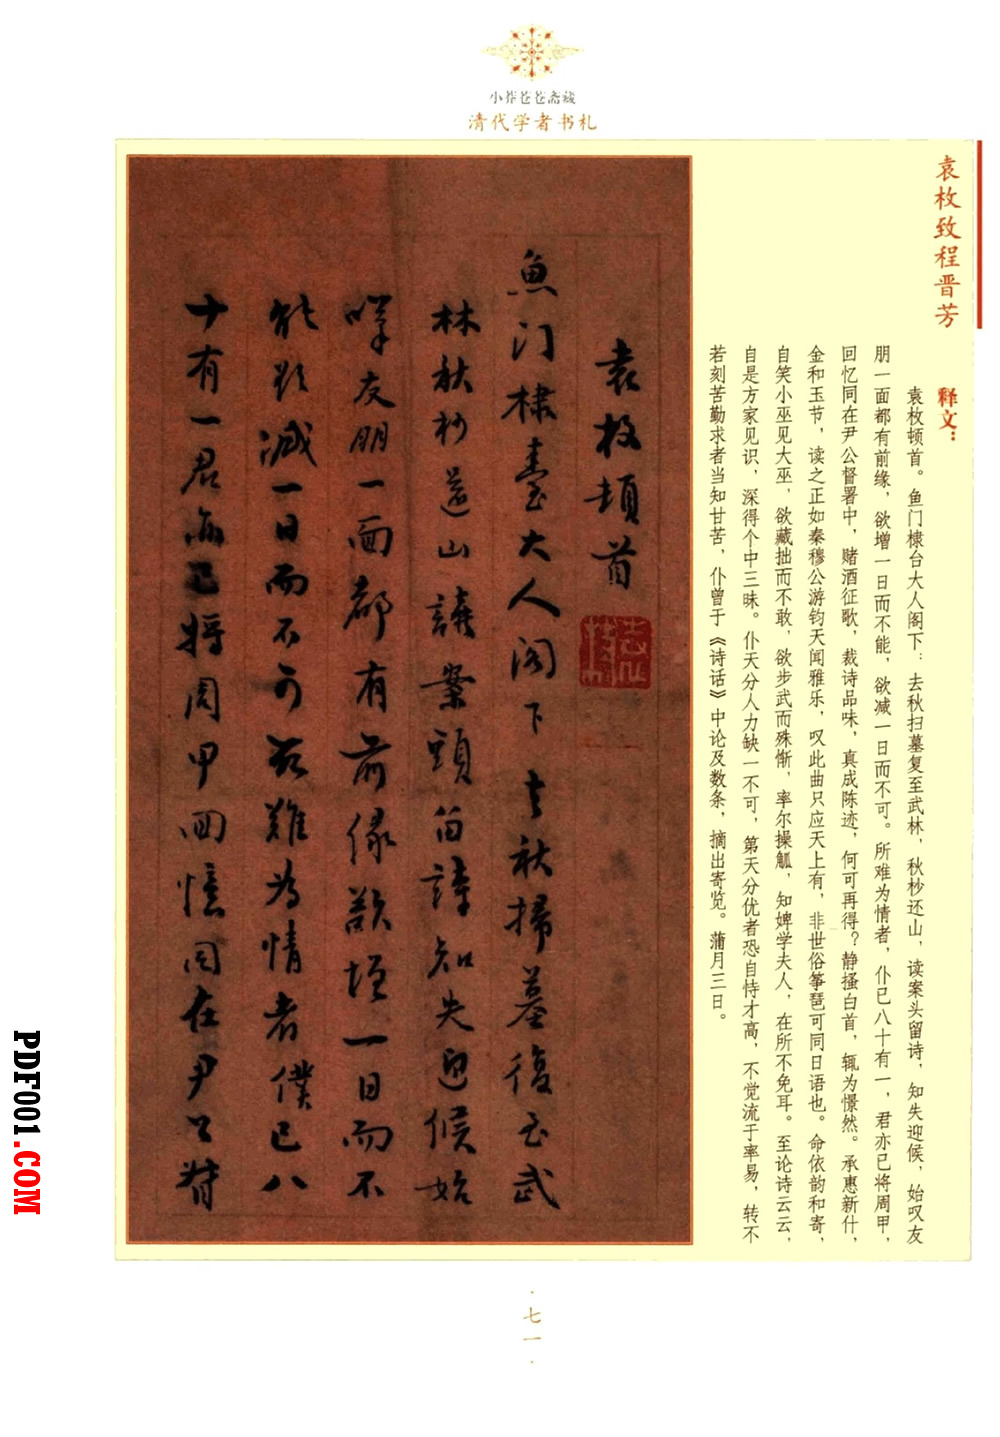 小莽苍苍斋藏
清代学者书札
袁枚致程晋芳
释文：
袁枚顿首。鱼门棣台大人阁下：去秋扫墓复至武林，秋杪还山，读案头留诗，知失迎候，始叹友
朋一面都有前缘，欲增一日而不能，欲减一日而不可。所难为情者，仆已八十有一，君亦已将周甲，
回忆同在尹公督署中，赌酒征歌，裁诗品味，真成陈迹，何可再得？静搔白首，辄为憬然。承惠新什，
金和玉节，读之正如秦穆公游钧天闻雅乐，叹此曲只应天上有，非世俗筝琶可同日语也。命依韵和寄，
自笑小巫见大巫，欲藏拙而不敢，欲步武而殊惭，率尔操觚，知婢学夫人，在所不免耳。至论诗云云，
自是方家见识，深得个中三昧。仆天分人力缺一不可，第天分优者恐自恃才高，不觉流于率易，转不
若刻苦勤求者当知甘苦，仆曾于《诗话》中论及数条，摘出寄览。蒲月三日。
袁枚頓首
魚门棣臺大人阁下去秋掃墓復至武
林秋杪還山讀案頭留詩知失迎候始
嘆友朋一面都有前缘欲增一日而不
能欲减一日而不可所難为情者僕已八
十有一君亦已將周甲回憶同在尹公督
·七一·
PDF001.COM